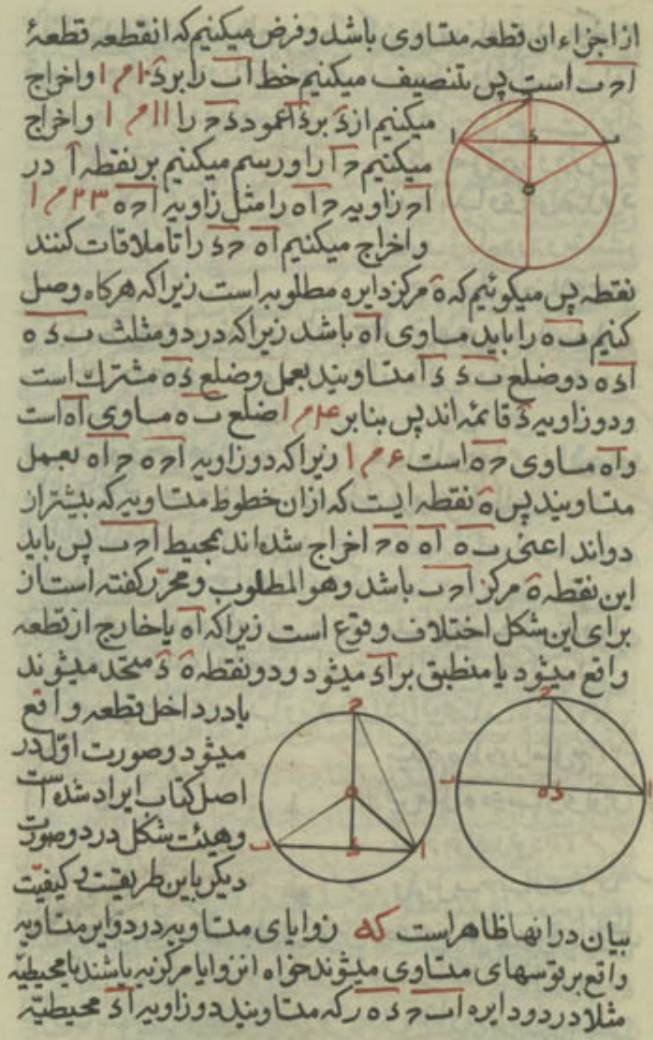 از اجزاء ان قطعه متساوی باشد و فرض میکنیم که انقطعه قطعهٔ
ا ح ب است پس بتنصیف میکنیم خط اب را بر ء ۱۰ م ۱ و اخراج
میکنیم از ء بر ء ا عمود ء ح را ۱۱ م ۱ و اخراج
میکنیم ح ا را و رسم میکنیم بر نقطه ا در
ا ح زاویه ح ا ه را مثل زاویه ا ح ه ۲۳ م ۱
و اخراج میکنیم ا ه ح ء را تا ملاقات کنند
نقطه پس میکوئیم که ه مرکز دایره مطلوبه است زیرا که هرکاه وصل
کنیم ب ه را باید مساوی ا ه باشد زیرا که در دو مثلث ب ء ه
ا ء ه دو ضلع ب ء ء ا متساویند بعمل و ضلع ء ه مشترك است
و دو زاویه ء قائمه اند پس بنابر ۴ م ۱ ضلع ب ه مساوی ا ه است
و ا ه مساوی ح ه است ۶ م ۱ زیرا که دو زاویه ا ح ه ح ا ه بعمل
متساویند پس ه نقطه ایست که ازان خطوط متساویه که بیشتر از
دواند اعنی ب ه ا ه ه ح اخراج شده اند بمحیط ا ح ب پس باید
این نقطه ه مرکز ا ح ب باشد و هو المطلوب و محرّر کفته است از
برای این شکل اختلاف وقوع است زیرا که ا ه یا خارج از قطعه
واقع میشود یا منطبق بر ا ء میشود و دو نقطه ه ء متحد میشوند
یا در داخل قطعه واقع
میشود و صورت اوّل در
اصل کتاب ایراد شده است
و هیئت شکل در دو صورت
دیکر باین طریقیست و کیفیّت
بیان در انها ظاهر است که زوایای متساویه در دوایر متساویه
واقع بر قوسهای متساوی میشوند خواه انزوایا مرکزیه باشند یا محیطیّه
مثلا در دو دایره ا ب ح ء ه ر که متساویند دو زاویه ا ء محیطیّه